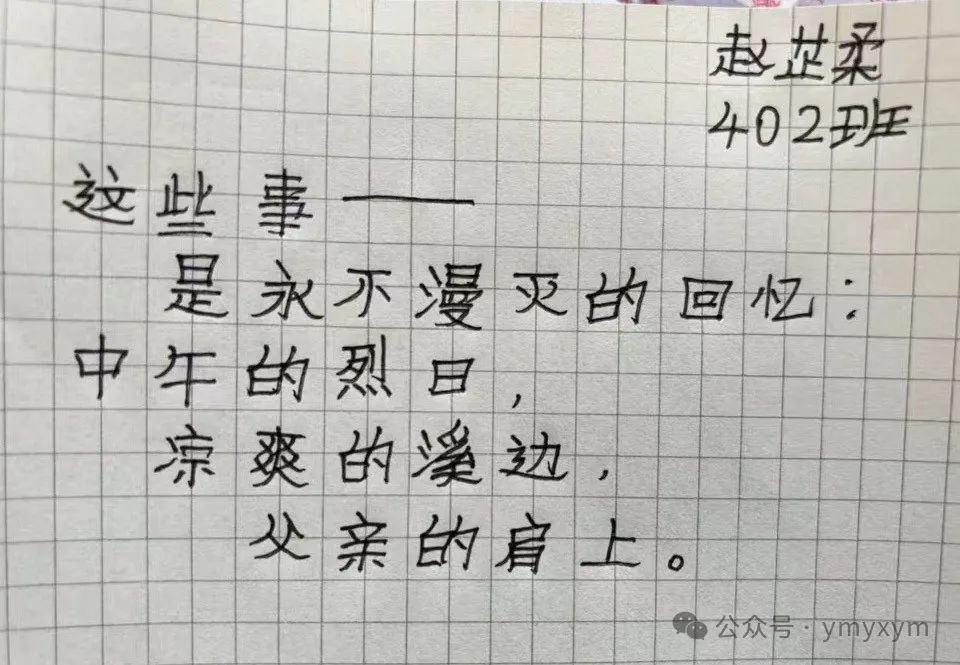 赵芷柔
402班
这些事——
是永不漫灭的回忆：
中午的烈日，
凉爽的溪边，
父亲的肩上。
公众号·ymyxym